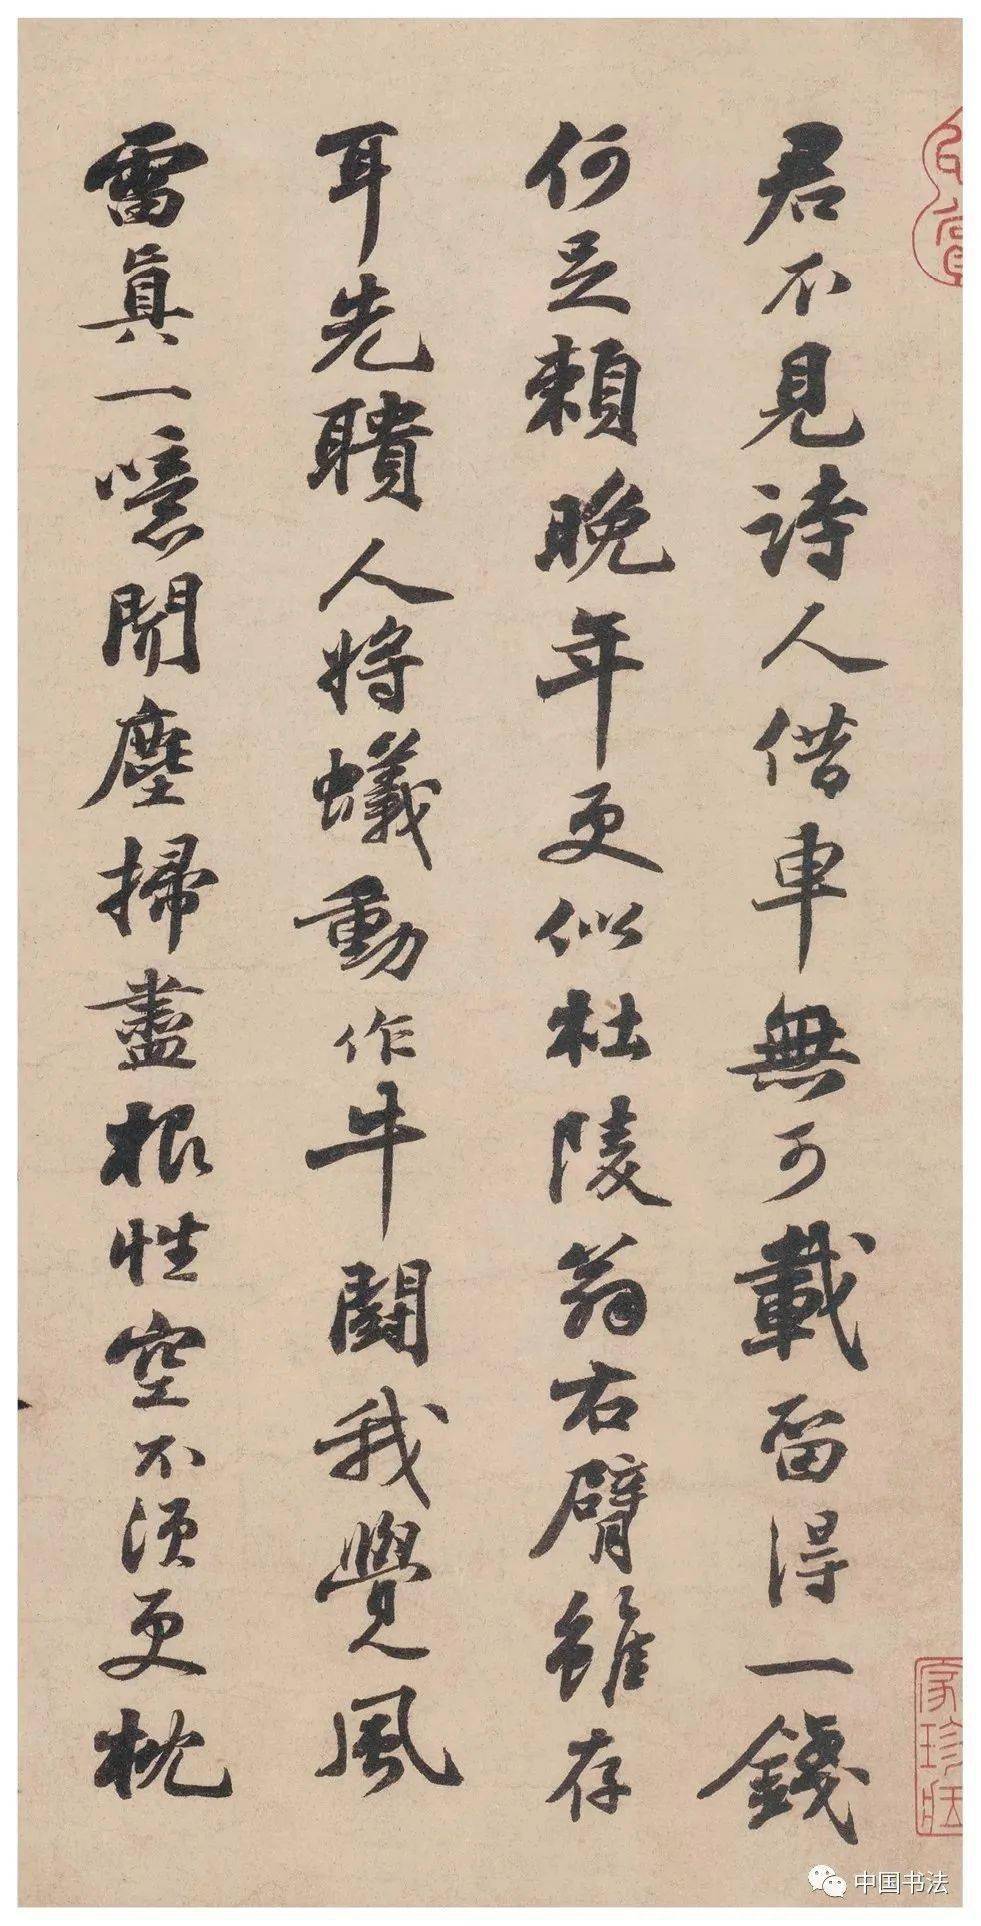 君不見詩人借車無可載留得一錢
何足賴晚年更似杜陵翁右臂雖存
耳先聵人將蟻動作牛鬪我覺風
雷真一噫聞塵掃盡根性空不須更枕
中国书法